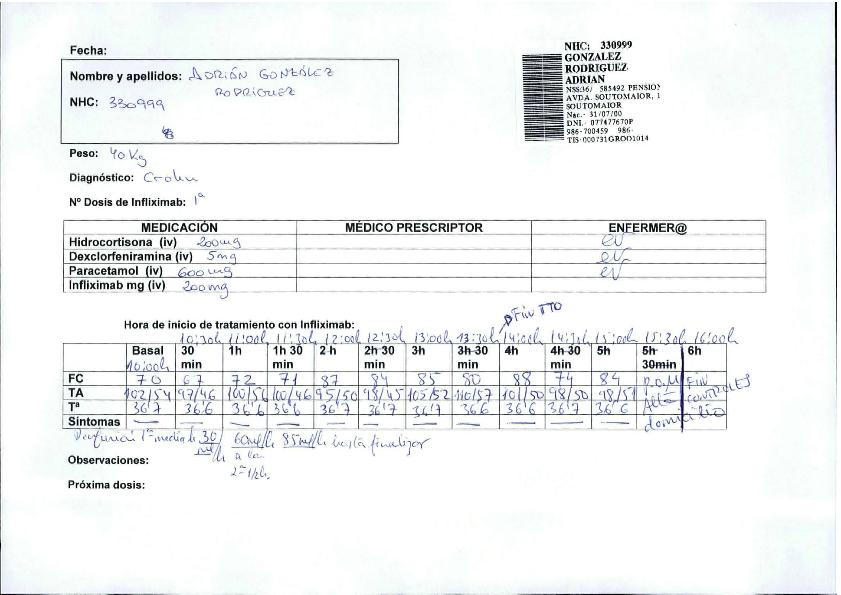 Fecha:
Nombre y apellidos: ADRIÁN GONZÁLEZ
RODRÍGUEZ
NHC: 330999
NHC: 330999
GONZALEZ
RODRIGUEZ
ADRIAN
NSS:36/ 585492 PENSIO
AVDA. SOUTOMAIOR, 1
SOUTOMAIOR
Nac.- 31/07/00
DNI.- 077477670P
986-700459 986-
TIS-000731GROD1014
Peso: 40 Kg
Diagnóstico: Crohn
Nº Dosis de Infliximab: 1ª
MEDICACIÓN MÉDICO PRESCRIPTOR ENFERMER@
Hidrocortisona (iv) 200mg
Dexclorfeniramina (iv) 5mg
Paracetamol (iv) 600mg
Infliximab mg (iv) 200mg
Fin TTO
Hora de inicio de tratamiento con Infliximab:
10:30h 11:00h 11:30h 12:00h 12:30h 13:00h 13:30h 14:00h 14:30h 15:00h 15:30h 16:00h
Basal 30 1h 1h 30 2 h 2h 30 3h 3h 30 4h 4h 30 5h 5h 6h
10:00h min min min min min 30min
FC 70 67 72 71 87 84 85 80 88 74 84 P.O.M Fin
TA 102/54 97/46 100/56 100/46 95/50 98/45 105/52 110/57 101/50 98/50 98/51 Alta controles
Tª 36'7 36'6 36'6 36'6 36'7 36'7 36'7 36'6 36'6 36'7 36'6 domicilio
Síntomas — — — — — — — — — — —
1ª media h 30 ml/h 60ml/h 85ml/h hasta finalizar
a las
2ª 1/2h.
Observaciones:
Próxima dosis: